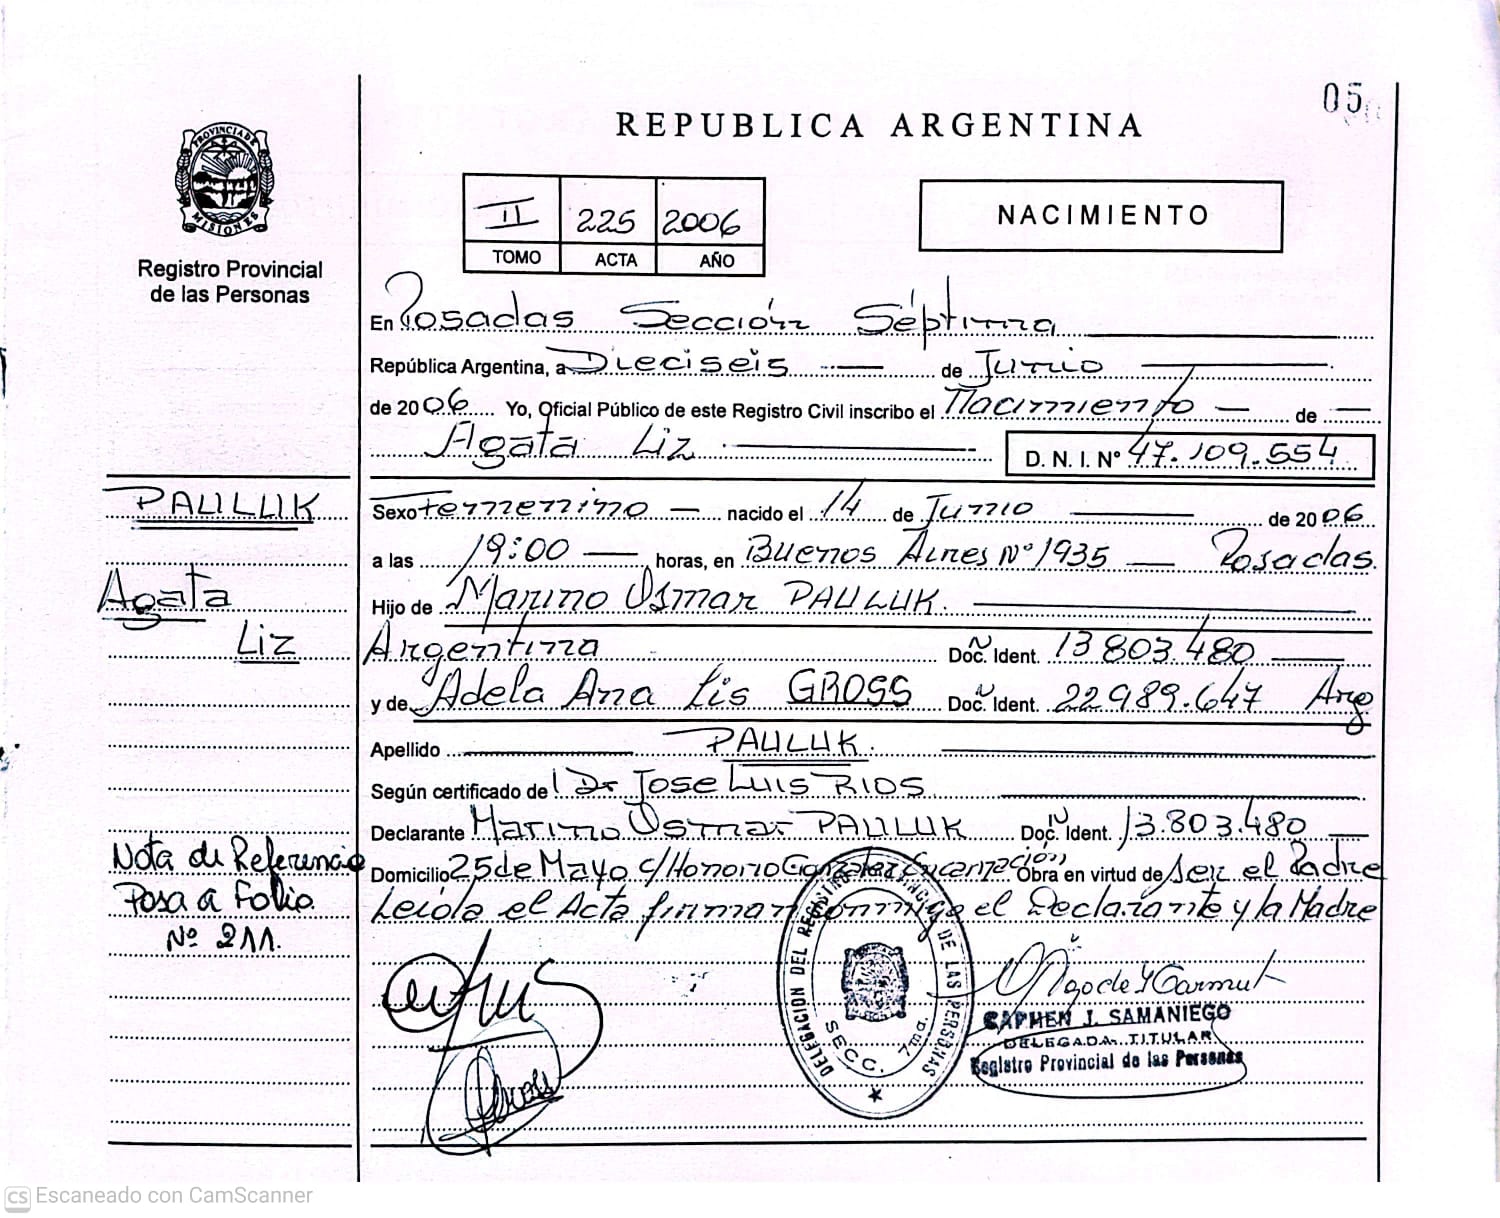 05
REPUBLICA ARGENTINA
PROVINCIA DE
MISIONES
Registro Provincial
de las Personas
II 225 2006
TOMO ACTA AÑO
NACIMIENTO
En Posadas Sección Séptima
República Argentina, a Dieciseis de Junio
de 2006 Yo, Oficial Público de este Registro Civil inscribo el Nacimiento de
Agata Liz
D. N. I. Nº 47.109.554
PAULUK
Agata
Liz
Sexo Femenino nacido el 14 de Junio de 2006
a las 19:00 horas, en Buenos Aires Nº 1935 Posadas.
Hijo de Marino Osmar PAULUK.
Argentina Doc. Ident. Nº 13.803.480
y de Adela Ana Lis GROSS Doc. Ident. Nº 22.989.647 Arg
Apellido PAULUK.
Según certificado del Dr Jose Luis RIOS
Declarante Marino Osmar PAULUK Doc. Ident. Nº 13.803.480
Domicilio 25 de Mayo c/Honorio Gonzalez Encarnación Obra en virtud de ser el Padre
Leída el Acta firman conmigo el Declarante y la Madre
Nota de Referencia
Pasa a Folio
Nº 211.
DELEGACION DEL REGISTRO PROVINCIAL DE LAS PERSONAS
SECC. 7ma.
CARMEN J. SAMANIEGO
DELEGADA TITULAR
Registro Provincial de las Personas
CS Escaneado con CamScanner